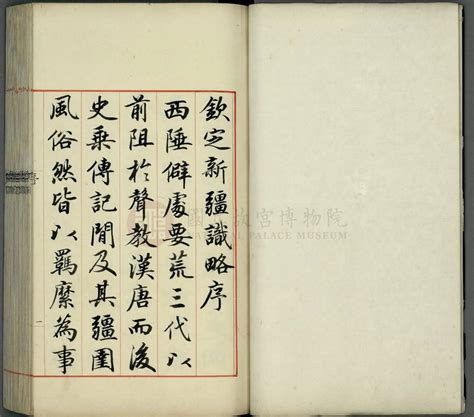 欽定新疆識略序
西陲僻處要荒三代以
前阻於聲教漢唐而後
史乘傳記間及其疆圉
風俗然皆以羈縻為事
一
國立故宮博物院
NATIONAL PALACE MUSEUM